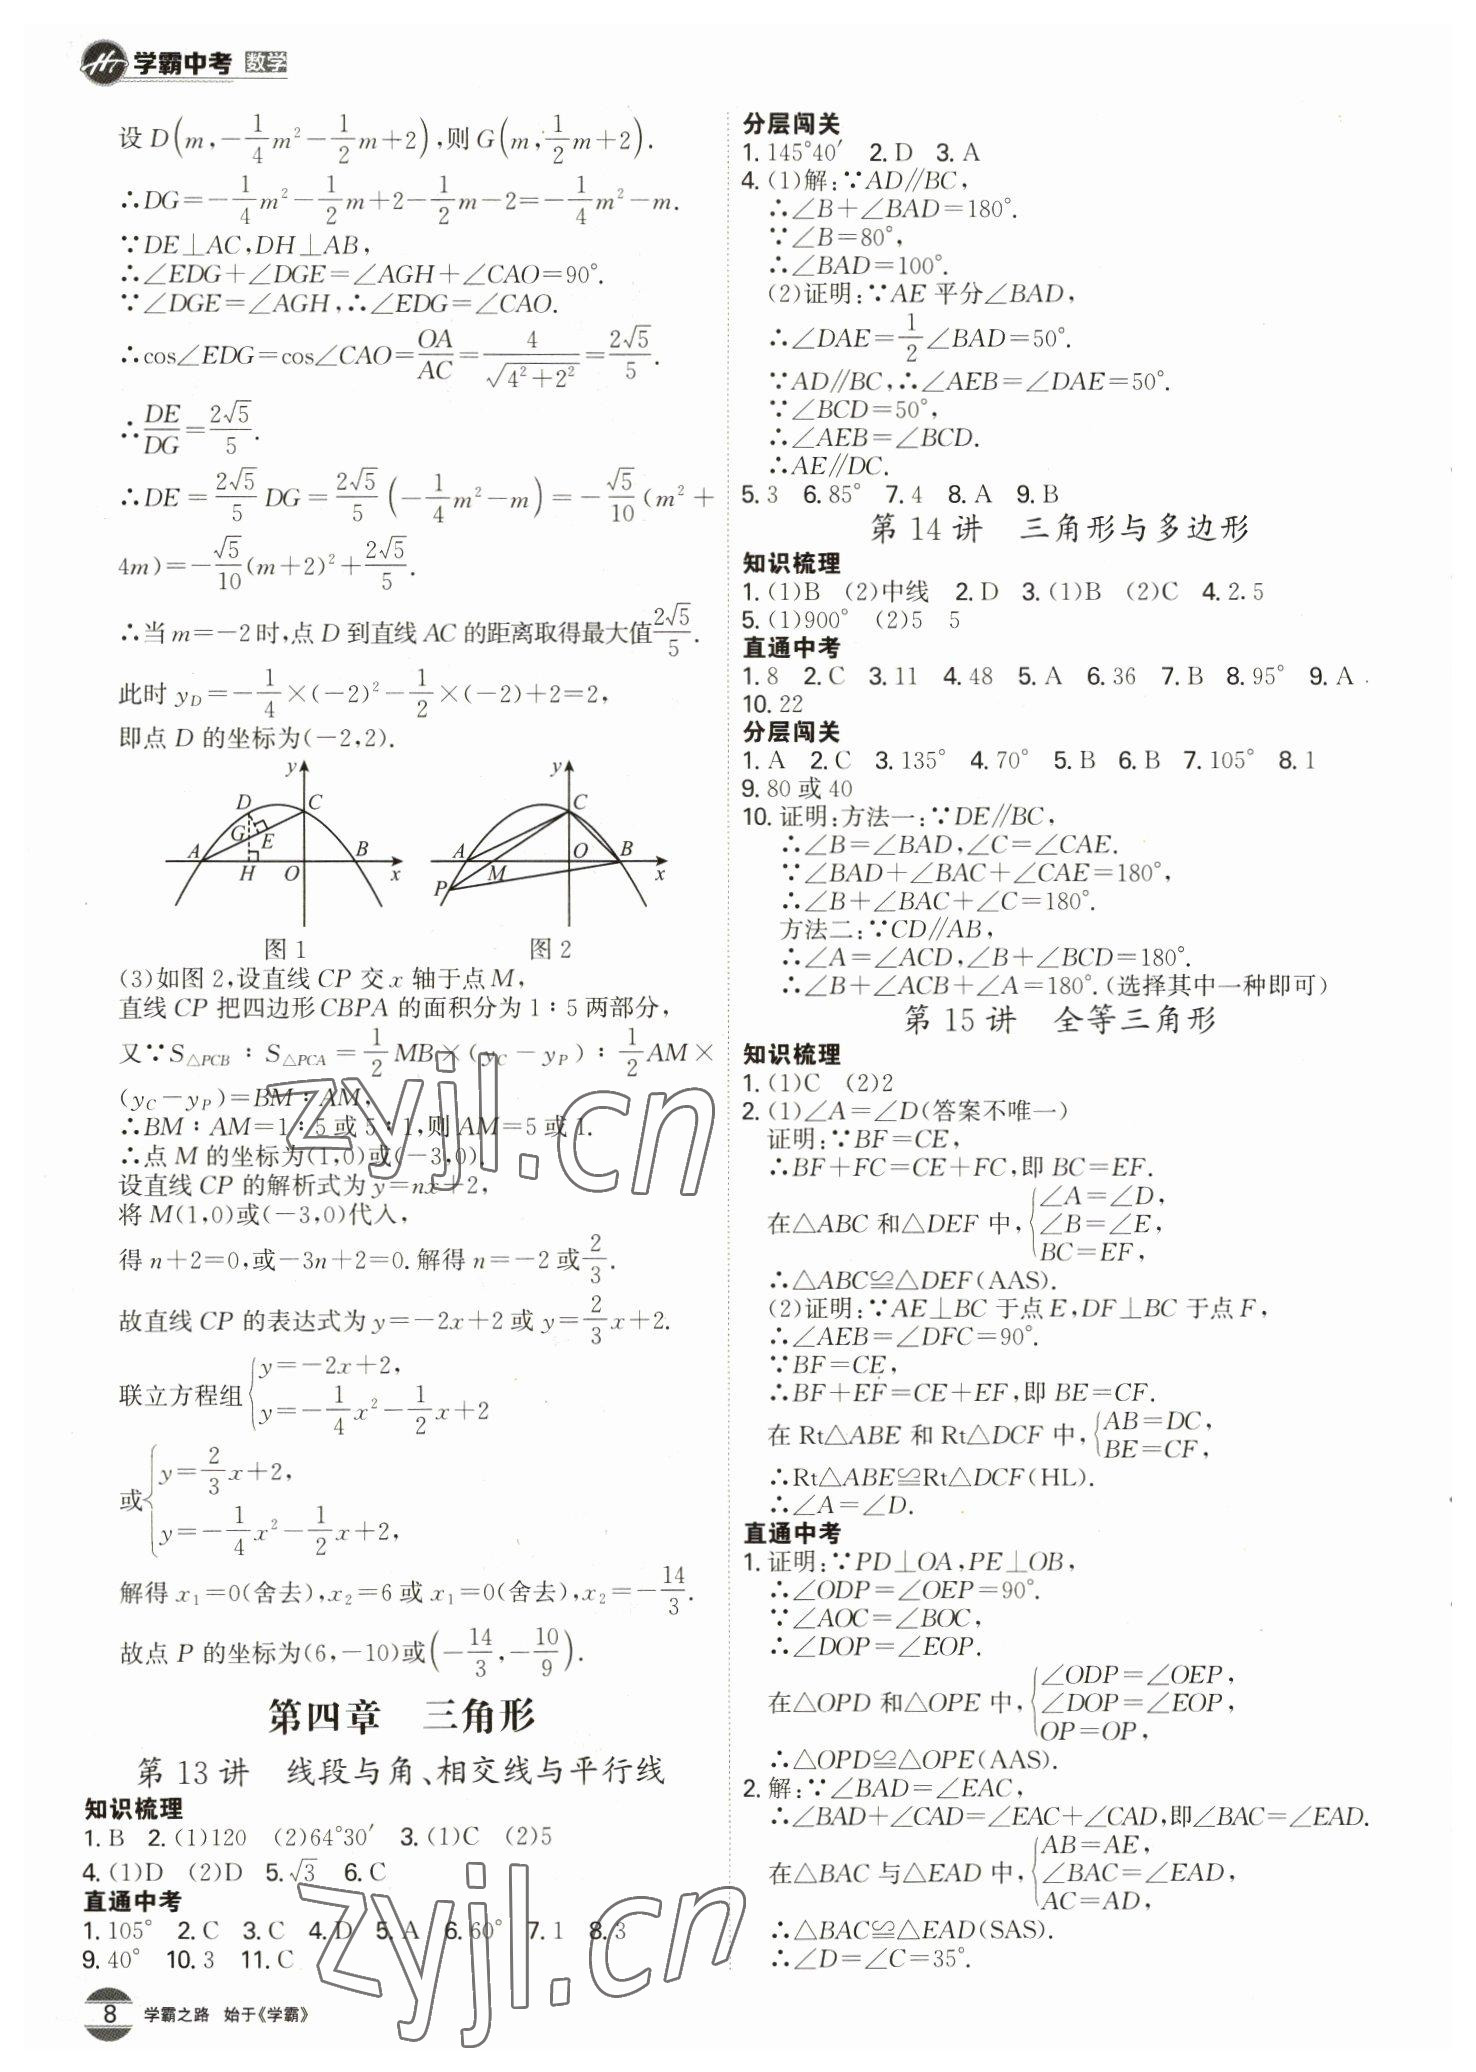 学霸中考 数学
设D(m,-1/4m²-1/2m+2),则G(m,1/2m+2).
∴DG=-1/4m²-1/2m+2-1/2m-2=-1/4m²-m.
∵DE⊥AC,DH⊥AB,
∴∠EDG+∠DGE=∠AGH+∠CAO=90°.
∵∠DGE=∠AGH,∴∠EDG=∠CAO.
∴cos∠EDG=cos∠CAO=OA/AC=4/√(4²+2²)=2√5/5.
∴DE/DG=2√5/5.
∴DE=2√5/5DG=2√5/5(-1/4m²-m)=-√5/10(m²+
4m)=-√5/10(m+2)²+2√5/5.
∴当m=-2时,点D到直线AC的距离取得最大值2√5/5.
此时y_D=-1/4×(-2)²-1/2×(-2)+2=2,
即点D的坐标为(-2,2).
y D C G E A B H O x
图1
y C A O B M P x
图2
(3)如图2,设直线CP交x轴于点M,
直线CP把四边形CBPA的面积分为1∶5两部分,
又∵S△PCB∶S△PCA=1/2MB×(y_C-y_P)∶1/2AM×
(y_C-y_P)=BM∶AM,
∴BM∶AM=1∶5或5∶1,则AM=5或1.
∴点M的坐标为(1,0)或(-3,0).
设直线CP的解析式为y=nx+2,
将M(1,0)或(-3,0)代入,
得n+2=0,或-3n+2=0.解得n=-2或2/3.
故直线CP的表达式为y=-2x+2或y=2/3x+2.
联立方程组{y=-2x+2,
y=-1/4x²-1/2x+2
或{y=2/3x+2,
y=-1/4x²-1/2x+2,
解得x₁=0(舍去),x₂=6或x₁=0(舍去),x₂=-14/3.
故点P的坐标为(6,-10)或(-14/3,-10/9).
第四章 三角形
第13讲 线段与角、相交线与平行线
知识梳理
1. B 2. (1)120 (2)64°30′ 3. (1)C (2)5
4. (1)D (2)D 5. √3 6. C
直通中考
1. 105° 2. C 3. C 4. D 5. A 6. 60° 7. 1 8. 3
9. 40° 10. 3 11. C
8 学霸之路 始于《学霸》
分层闯关
1. 145°40′ 2. D 3. A
4. (1)解:∵AD∥BC,
∴∠B+∠BAD=180°.
∵∠B=80°,
∴∠BAD=100°.
(2)证明:∵AE平分∠BAD,
∴∠DAE=1/2∠BAD=50°.
∵AD∥BC,∴∠AEB=∠DAE=50°.
∵∠BCD=50°,
∴∠AEB=∠BCD.
∴AE∥DC.
5. 3 6. 85° 7. 4 8. A 9. B
第14讲 三角形与多边形
知识梳理
1. (1)B (2)中线 2. D 3. (1)B (2)C 4. 2.5
5. (1)900° (2)5 5
直通中考
1. 8 2. C 3. 11 4. 48 5. A 6. 36 7. B 8. 95° 9. A
10. 22
分层闯关
1. A 2. C 3. 135° 4. 70° 5. B 6. B 7. 105° 8. 1
9. 80或40
10. 证明:方法一:∵DE∥BC,
∴∠B=∠BAD,∠C=∠CAE.
∵∠BAD+∠BAC+∠CAE=180°,
∴∠B+∠BAC+∠C=180°.
方法二:∵CD∥AB,
∴∠A=∠ACD,∠B+∠BCD=180°.
∴∠B+∠ACB+∠A=180°.(选择其中一种即可)
第15讲 全等三角形
知识梳理
1. (1)C (2)2
2. (1)∠A=∠D(答案不唯一)
证明:∵BF=CE,
∴BF+FC=CE+FC,即BC=EF.
在△ABC和△DEF中,{∠A=∠D,
∠B=∠E,
BC=EF,
∴△ABC≌△DEF(AAS).
(2)证明:∵AE⊥BC于点E,DF⊥BC于点F,
∴∠AEB=∠DFC=90°.
∵BF=CE,
∴BF+EF=CE+EF,即BE=CF.
在Rt△ABE和Rt△DCF中,{AB=DC,
BE=CF,
∴Rt△ABE≌Rt△DCF(HL).
∴∠A=∠D.
直通中考
1. 证明:∵PD⊥OA,PE⊥OB,
∴∠ODP=∠OEP=90°.
∵∠AOC=∠BOC,
∴∠DOP=∠EOP.
在△OPD和△OPE中,{∠ODP=∠OEP,
∠DOP=∠EOP,
OP=OP,
∴△OPD≌△OPE(AAS).
2. 解:∵∠BAD=∠EAC,
∴∠BAD+∠CAD=∠EAC+∠CAD,即∠BAC=∠EAD.
在△BAC与△EAD中,{AB=AE,
∠BAC=∠EAD,
AC=AD,
∴△BAC≌△EAD(SAS).
∴∠D=∠C=35°.
zyjl.cn
zyjl.cn